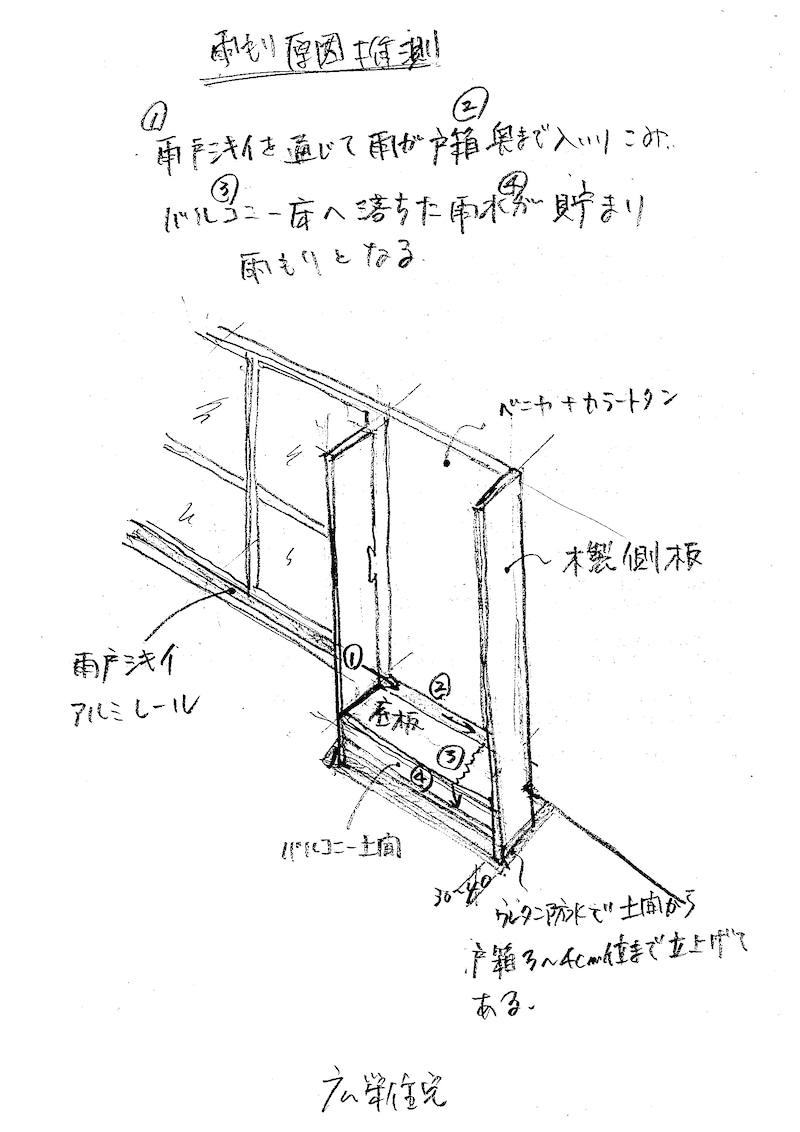 雨もり原因推測
①
②
雨戸シキイを通じて雨が戸箱奥まで入いりこみ
③
④
バルコニー床へ落ちた雨水が貯まり
雨もりとなる.
ベニヤ+カラートタン
木製側板
雨戸シキイ
アルミレール
①
②
底板
③
④
バルコニー土間
30~40
ウレタン防水で土間から
戸箱3~4cm位まで立上げて
ある.
住宅